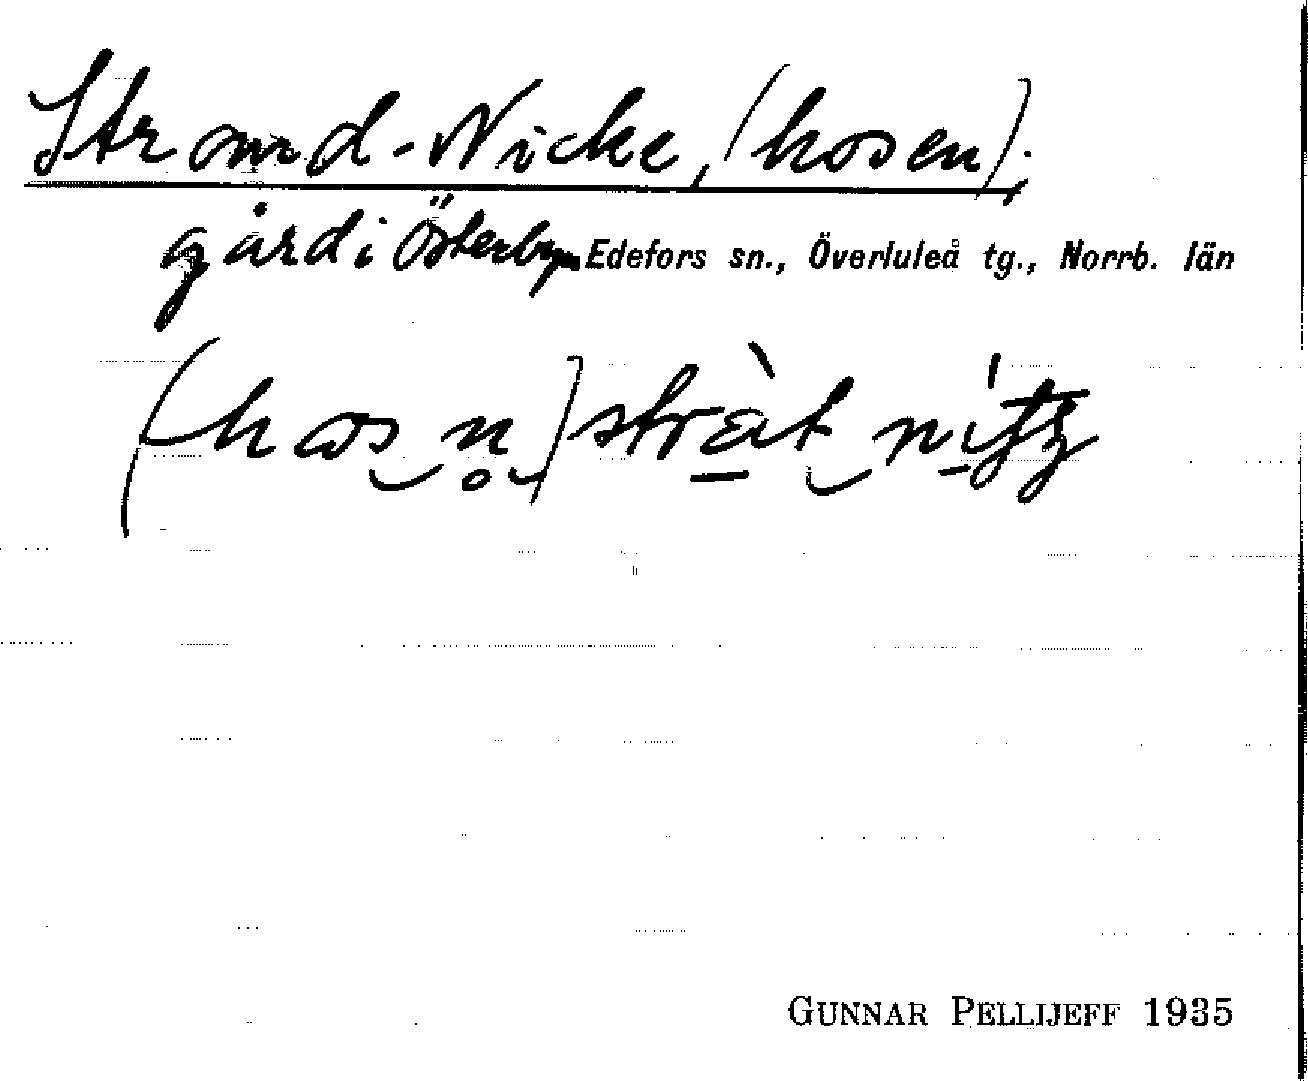 Strand-Nicke, (hosen).
gård i Österbyn Edefors sn., Överluleå tg., Norrb. län
GUNNAR PELLIJEFF 1935